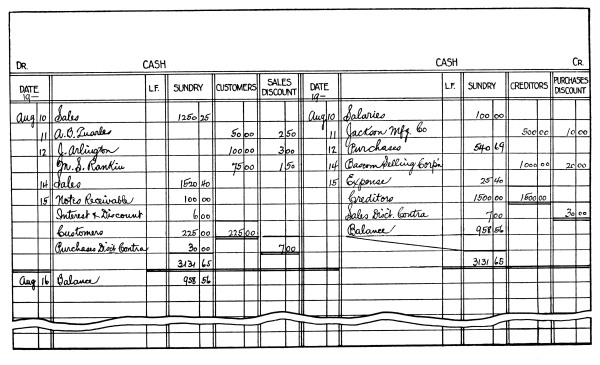 DR. CASH CASH CR.
DATE 19— L.F. SUNDRY CUSTOMERS SALES DISCOUNT DATE 19— L.F. SUNDRY CREDITORS PURCHASES DISCOUNT
Aug 10 Sales 1250 25 Aug 10 Salaries 100 00
11 A.O. Quarles 50 00 2 50 11 Jackson Mfg. Co 500 00 10 00
12 J. Arlington 100 00 3 00 12 Purchases 540 69
M. S. Rankin 75 00 1 50 14 Bascom Selling Corp'n 1000 00 20 00
14 Sales 1520 40 15 Expense 25 40
15 Notes Receivable 100 00 Creditors 1500 00 1500 00
Interest & Discount 6 00 Sales Disc't Contra 7 00 30 00
Customers 225 00 225 00 Balance 958 56
Purchases Disc't Contra 30 00 7 00
3131 65 3131 65
Aug 16 Balance 958 56